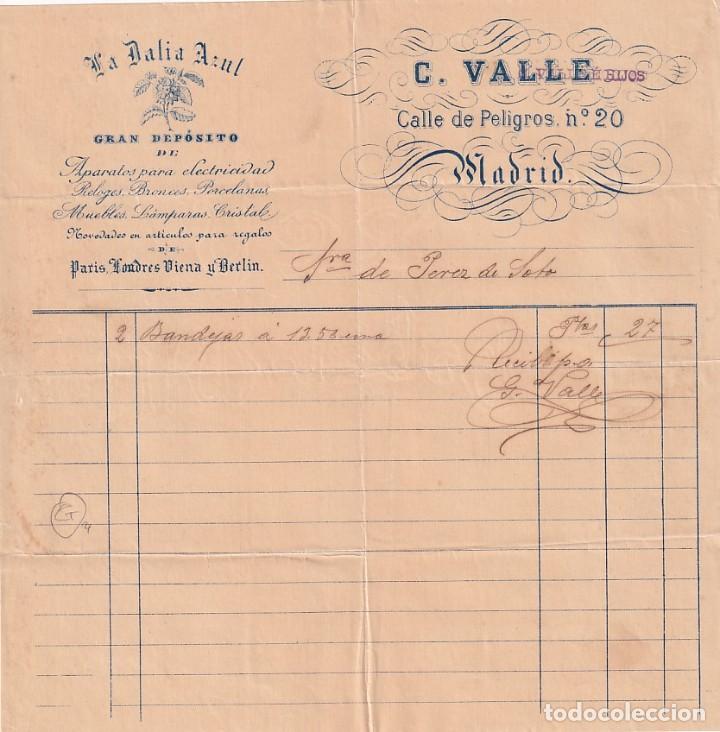 La Dalia Azul
GRAN DEPÓSITO
DE
Aparatos para electricidad
Reloges, Bronces, Porcelanas,
Muebles, Lámparas, Cristal,
Novedades en articulos para regalos
DE
Paris, Londres Viena y Berlin.
C. VALLE É HIJOS
Calle de Peligros, nº 20
Madrid.
Sra de Perez de Soto
2 Bandejas á 13.50 una Ptas 27
Recibí p.o.
G. Valle
todocoleccion.net